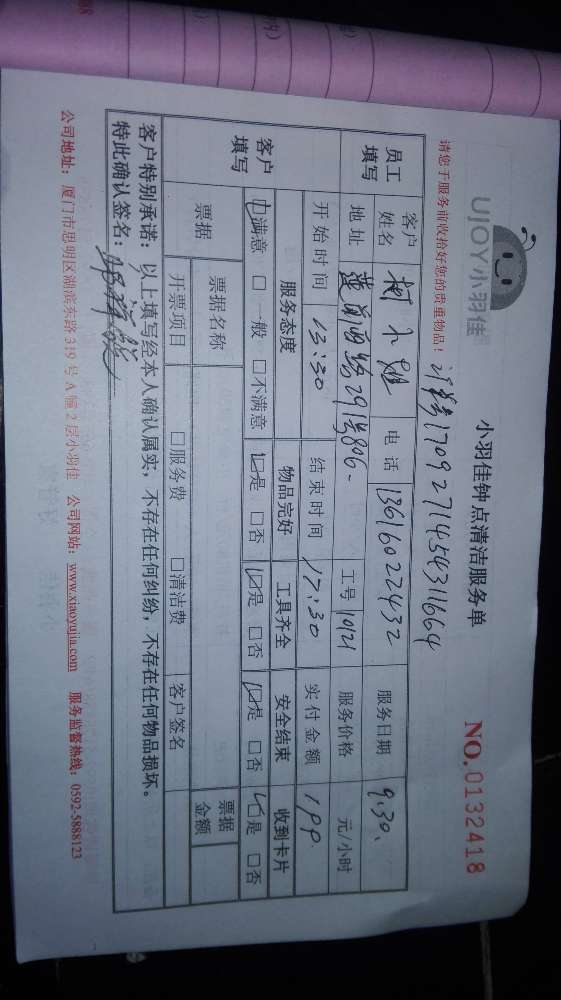 UJOY小羽佳
小羽佳钟点清洁服务单
NO.0132418
请您于服务前收拾好您的贵重物品!
订单号1709271454311664
员工填写
客户姓名 柯小姐 电话 13616022432 服务日期 9.30.
地址 莲前西路291号806- 工号 10121 服务价格 元/小时
开始时间 13:30 结束时间 17:30 实付金额 199
客户填写
服务态度 物品完好 工具齐全 安全结束 收到卡片
☑满意 □一般 □不满意 ☑是 □否 ☑是 □否 ☑是 □否 ☑是 □否
票据 票据名称 票据金额
开票项目 □服务费 □清洁费 客户签名
客户特别承诺:以上填写经本人确认属实,不存在任何纠纷,不存在任何物品损坏。
特此确认签名:
公司地址:厦门市思明区湖滨东路319号A幢2层小羽佳 公司网站:www.xiaoyujia.com 服务监督热线:0592-5888123